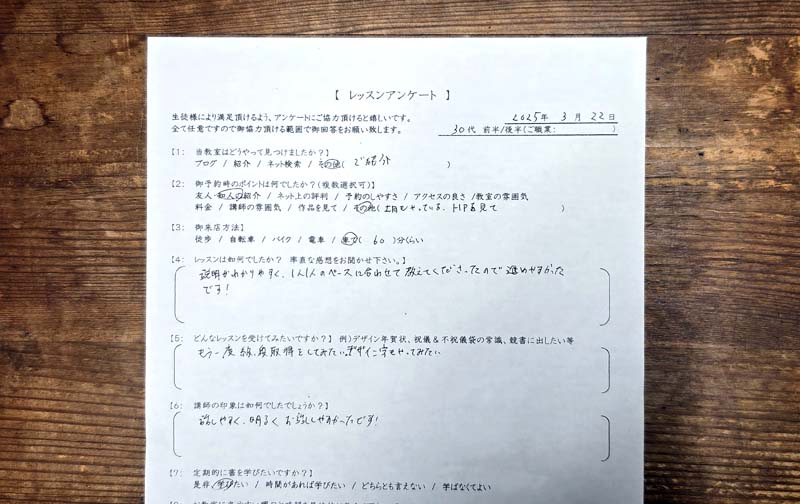 【 レッスンアンケート 】
生徒様により満足頂けるよう、アンケートにご協力頂けると嬉しいです。
全て任意ですので御協力頂ける範囲で御回答をお願い致します。
2025年 3月 22日
30代 前半/後半(ご職業: )
【1: 当教室はどうやって見つけましたか?】
ブログ / 紹介 / ネット検索 / その他( ご紹介 )
【2: 御予約時のポイントは何でしたか?(複数選択可)】
友人・知人の紹介 / ネット上の評判 / 予約のしやすさ / アクセスの良さ /教室の雰囲気
料金 / 講師の雰囲気 / 作品を見て / その他( もやっている、HP を見て )
【3: 御来店方法】
徒歩 / 自転車 / バイク / 電車 / 車で( 60 )分くらい
【4: レッスンは如何でしたか? 率直な感想をお聞かせ下さい。】
説明がわかりやすく、1人1人のペースに合わせて教えてくださったので進めやすかった
です!
【5: どんなレッスンを受けてみたいですか?】 例)デザイン年賀状、祝儀&不祝儀袋の常識、競書に出したい等
もう一度 級、段取得をしてみたい。デザイン字もやってみたい
【6: 講師の印象は如何でしたでしょうか?】
話しやすく、明るく、お話ししやすかったです!
【7: 定期的に書を学びたいですか?】
是非、学びたい / 時間があれば学びたい / どちらとも言えない / 学ばなくてよい